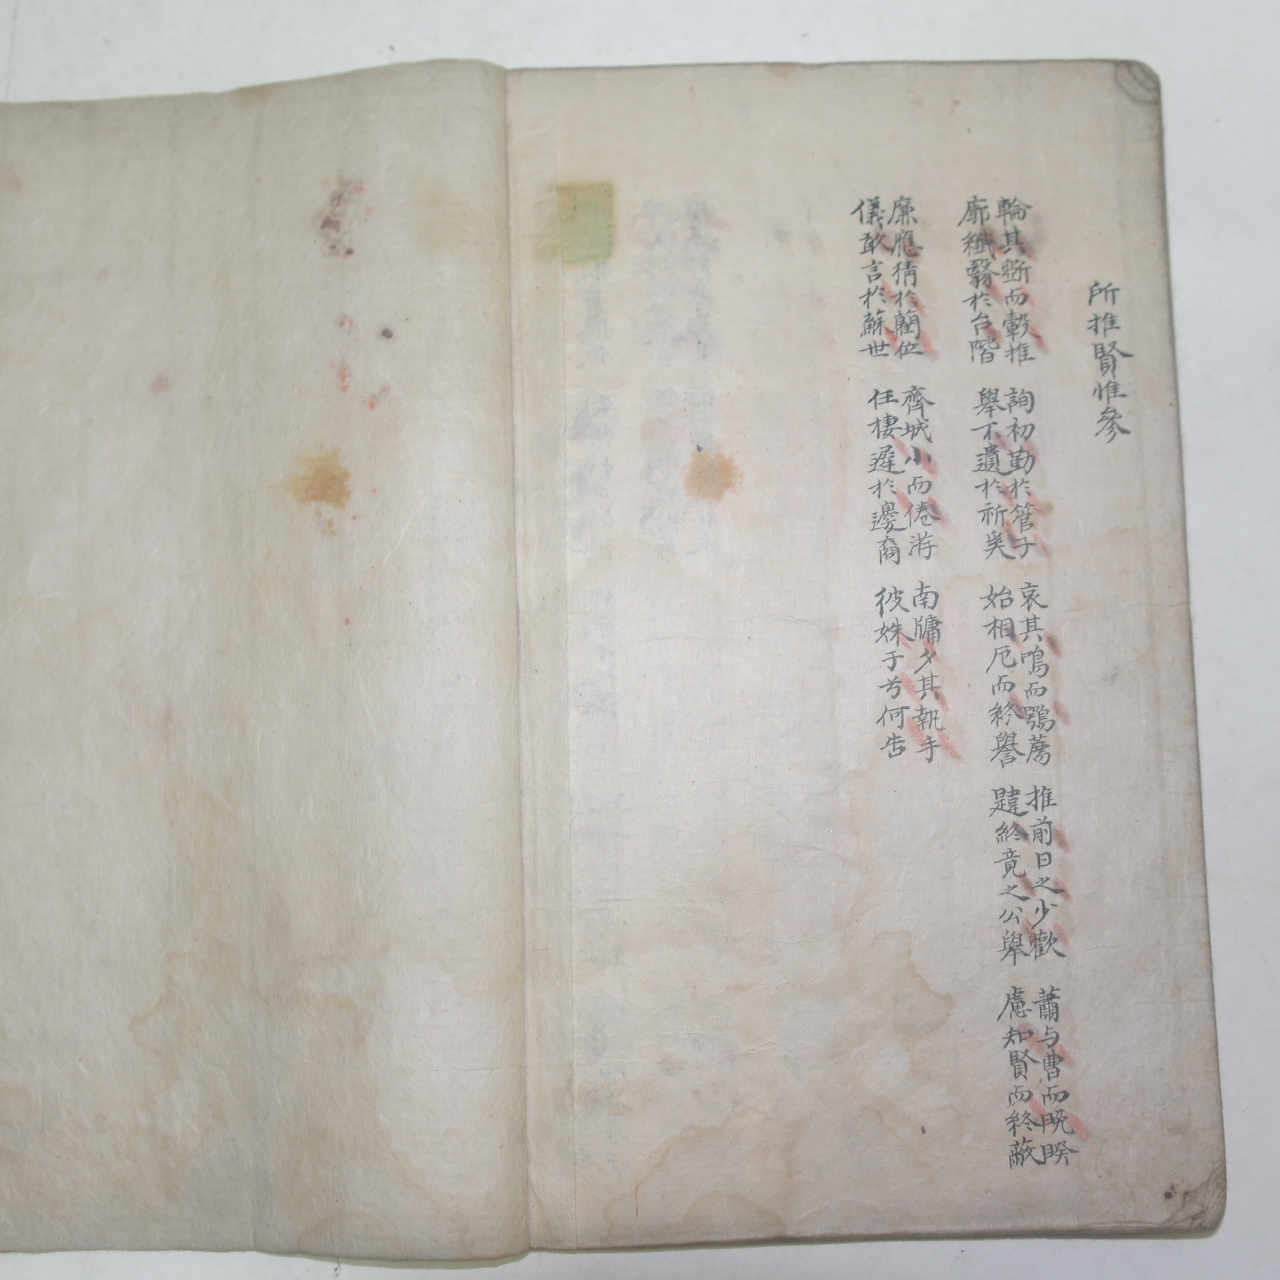 所推賢惟參
輪其斲而轂推
廓纖翳於台階
詢初勤於管子
舉不遺於祈奚
哀其鳴而鶚薦
始相厄而終譽
推前日之少歡
韙終竟之公舉
蕭与曹而晩暌
慮知賢而終蔽
廉應猜於藺位
儀敢言於蘇世
齊城小而倦游
任棲遲於邊裔
南牗夕其執手
彼姝子兮何告